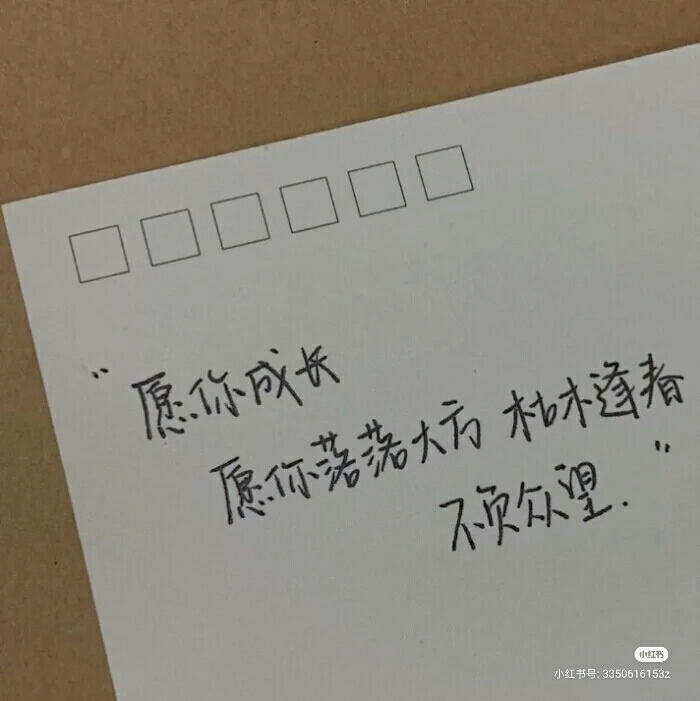 “愿你成长
愿你落落大方 枯木逢春
不负众望.”
小红书
小红书号: 3350616153z